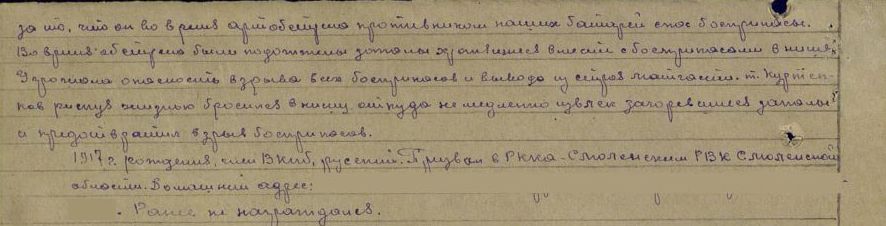 за то, что он во время артобстрела противником наших батарей спас боеприпасы.
Во время обстрела были подожжены хранившиеся вместе с боеприпасами в нише.
Угрожала опасность взрыва всех боеприпасов и вывода из строя матчасти. т. Куртен-
ков рискуя жизнью бросился в нишу, откуда немедленно извлек загоревшиеся
и предотвратил взрыв боеприпасов.
1917 г. рождения, член ВКП/б, русский. Призван в РККА - Смоленским РВК Смоленской
области. Домашний адрес:
Ранее не награждался.